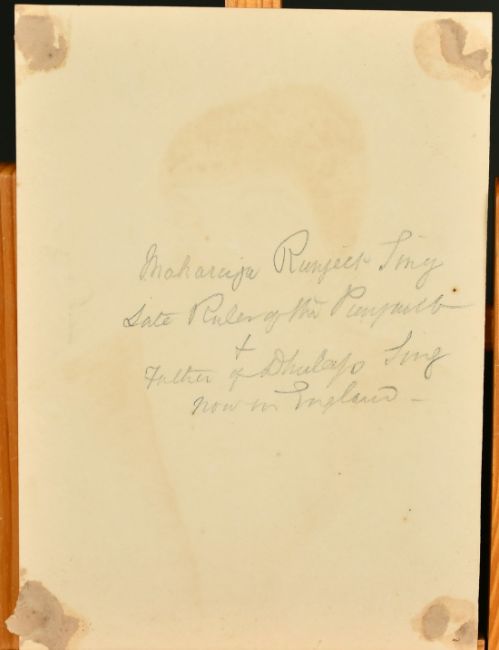 Maharaja Runjeet Sing
Late Ruler of the Punjaub
+
Father of Dhuleep Sing
now in England –